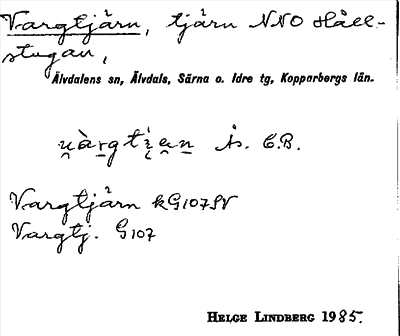 Vargtjärn, tjärn NNO Håll-
stugan,
Älvdalens sn, Älvdals, Särna o. Idre tg, Kopparbergs län.
Is. C.B.
Vargtjärn kG107SV
Vargtj. G107
HELGE LINDBERG 1985.